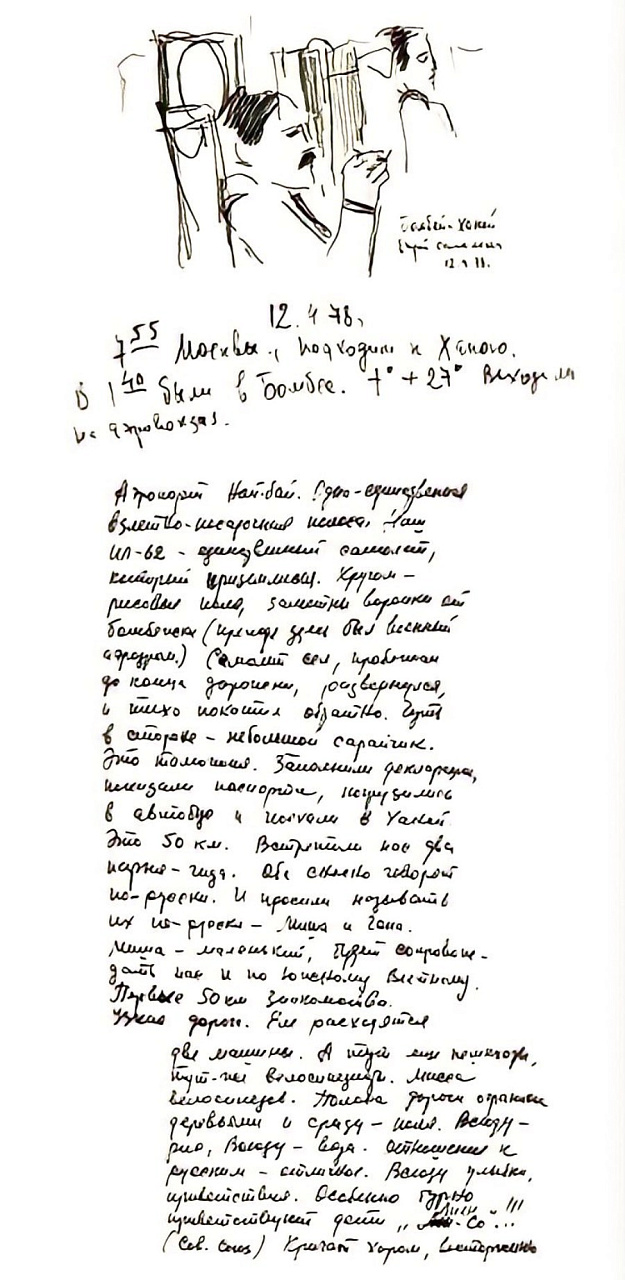 Бомбей – Ханой
12.4.78.
12.4 78.
7 55 Москвы., подходим к Ханою.
В 1 40 были в Бомбее. t° +27° Выходили
на аэровокзал.
Аэропорт Ной-бай. Одно-единственная
взлетно-посадочная полоса. Наш
ИЛ-62 – единственный самолет,
который приземлился. Кругом –
рисовые поля, заметны воронки от
бомбежки (прежде здесь был военный
аэродром.) Самолет сел, пробежал
до конца дорожки, развернулся,
и тихо покатил обратно. Чуть
в стороне – небольшой сарайчик.
Это таможня. Заполнили декларации,
показали паспорта, погрузились
в автобус и поехали в Ханой.
Это 50 км. Встретили нас два
парня – гида. Оба сносно говорят
по-русски. И просили называть
их по-русски – Миша и Гена.
Миша – маленький, будет сопровож-
дать нас и по Южному Вьетнаму.
Первые 50 км знакомства.
Узкая дорога. Еле расходятся
две машины. А тут еще пешеходы,
тут-же велосипедисты. Масса
велосипедов. Полоса дороги ограничена
деревьями и сразу – поля. Всюду –
рис, Всюду – вода. Отношение к
русским – отличное. Всюду улыбки,
приветствия. Особенно бурно
приветствуют дети „Лиен-Со"!!!
(Сов. Союз) Кричат хором, восторженно